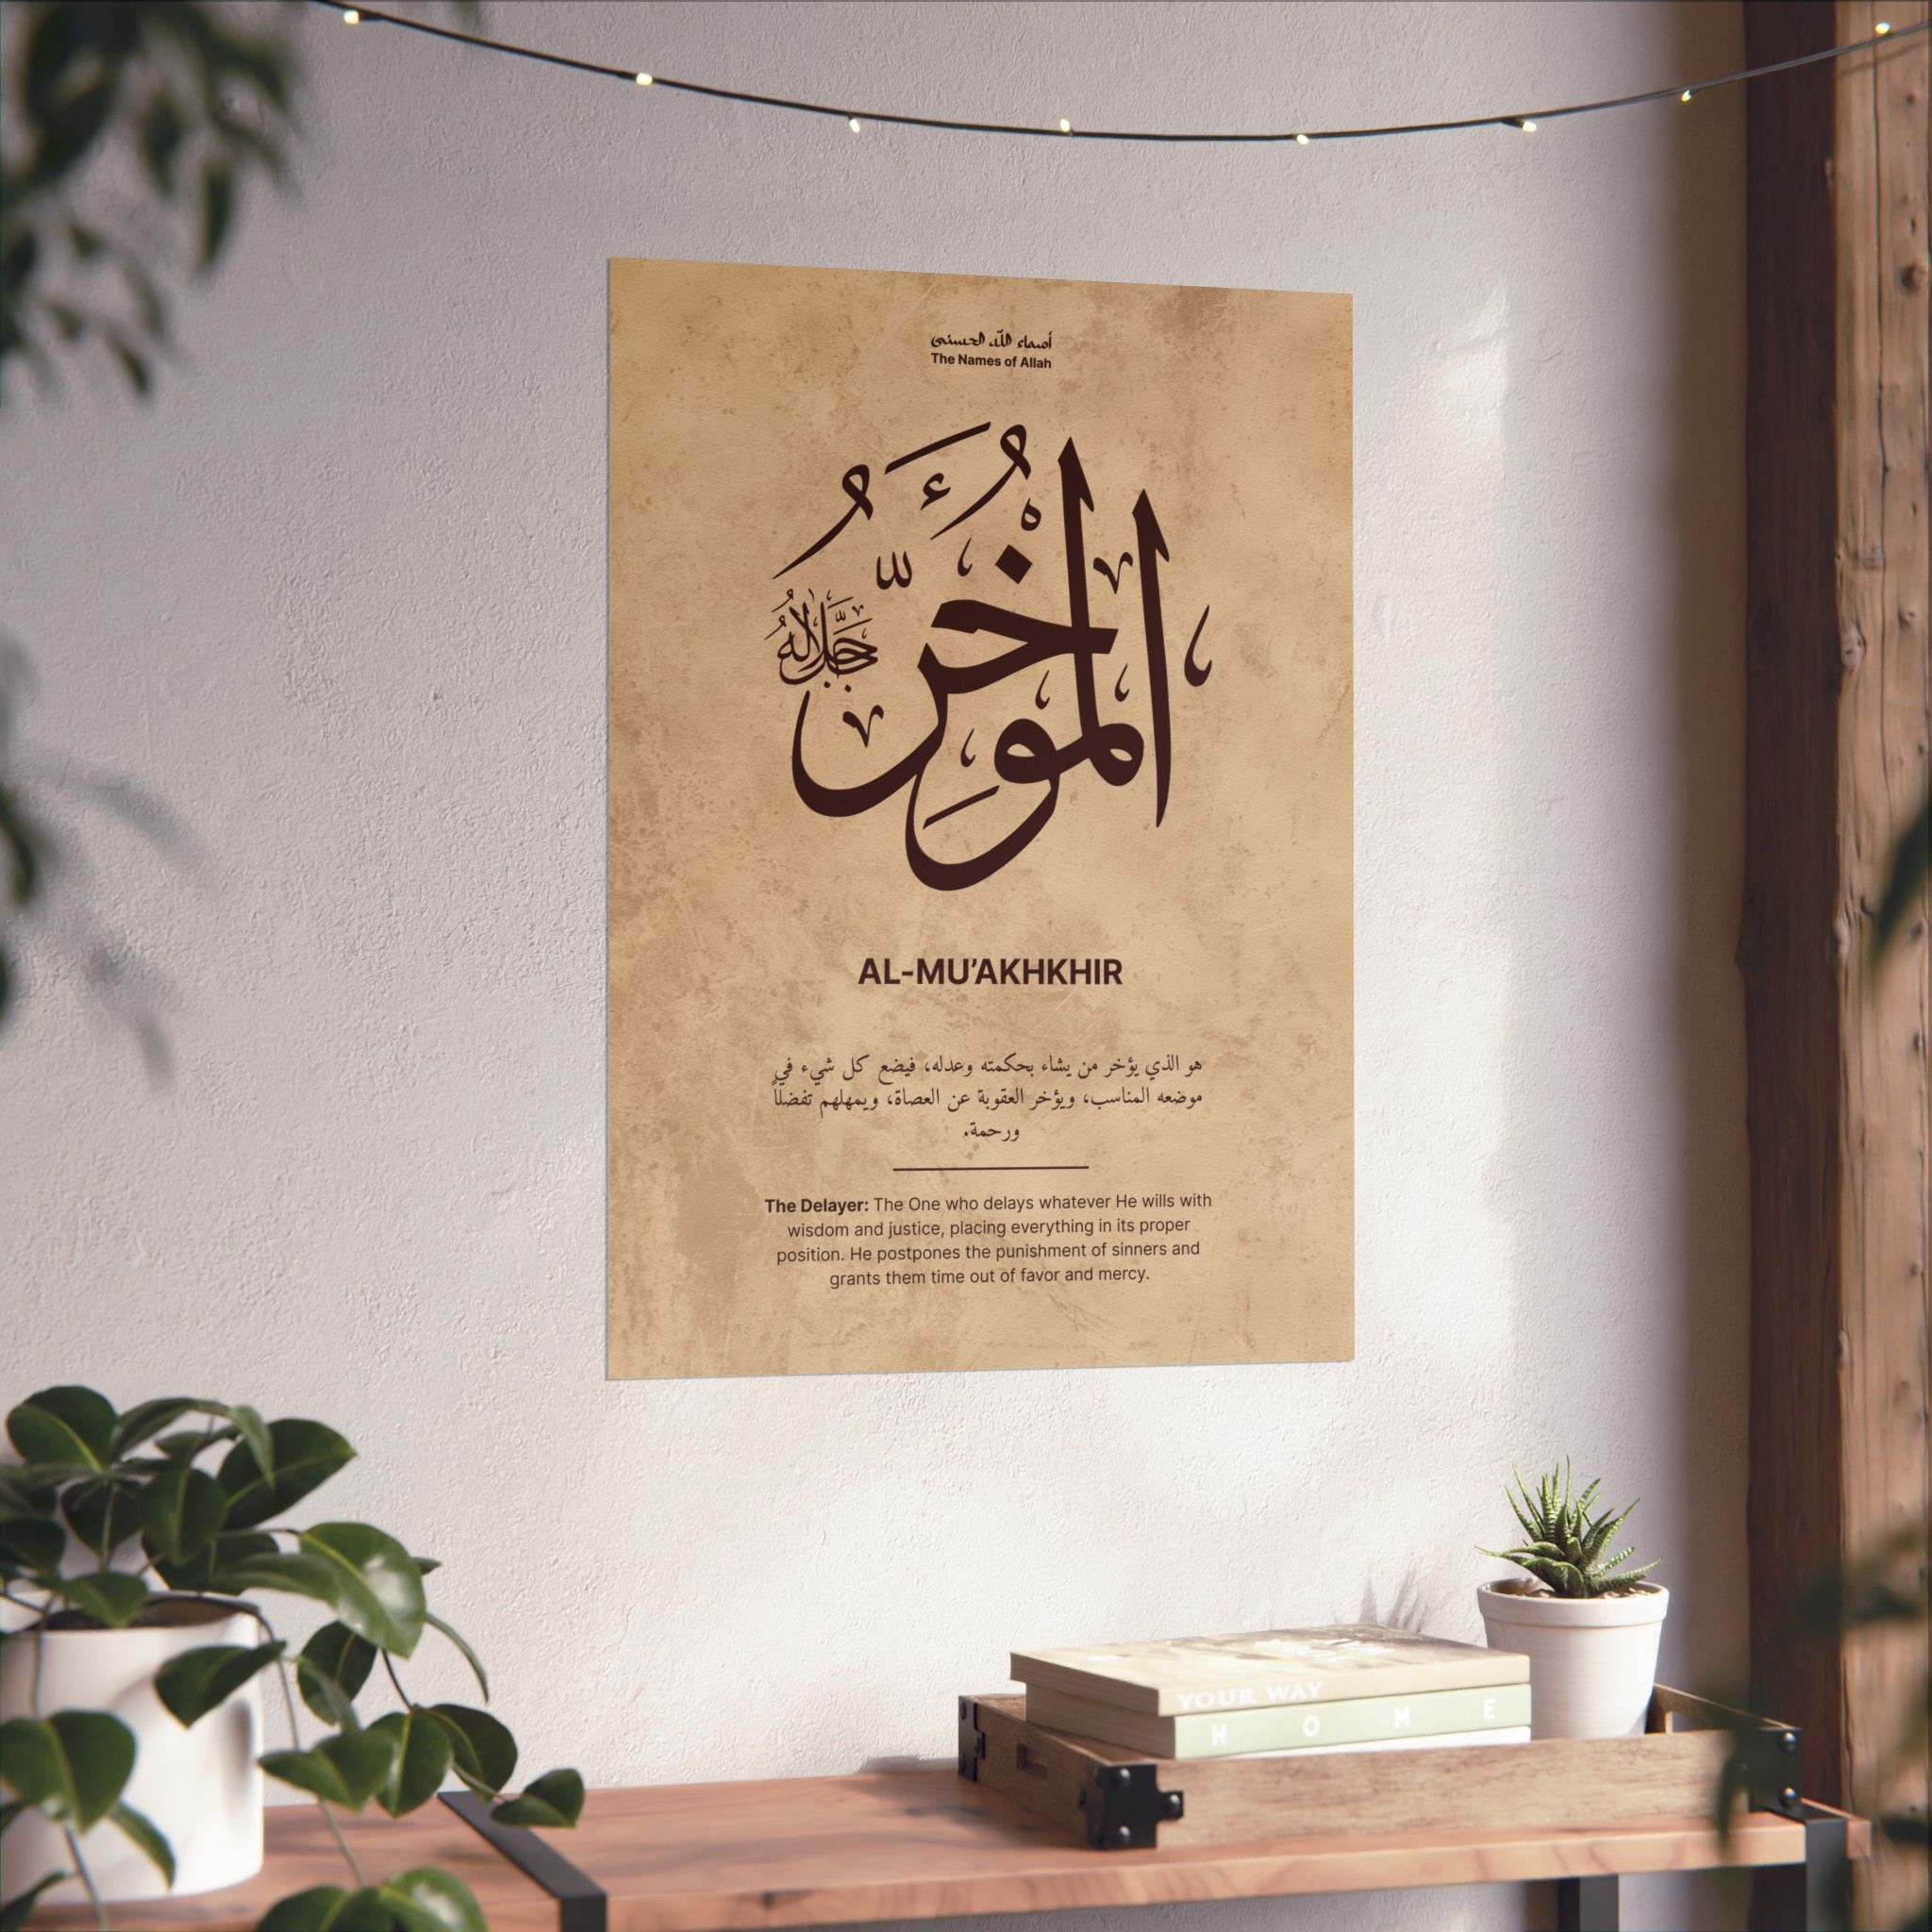 أسماء الله الحسنى
The Names of Allah
المؤخر
جل جلاله
AL-MU’AKHKHIR
هو الذي يؤخر من يشاء بحكمته وعدله، فيضع كل شيء في
موضعه المناسب، ويؤخر العقوبة عن العصاة، ويمهلهم تفضلاً
ورحمة.
The Delayer: The One who delays whatever He wills with
wisdom and justice, placing everything in its proper
position. He postpones the punishment of sinners and
grants them time out of favor and mercy.
YOUR WAY
HOME